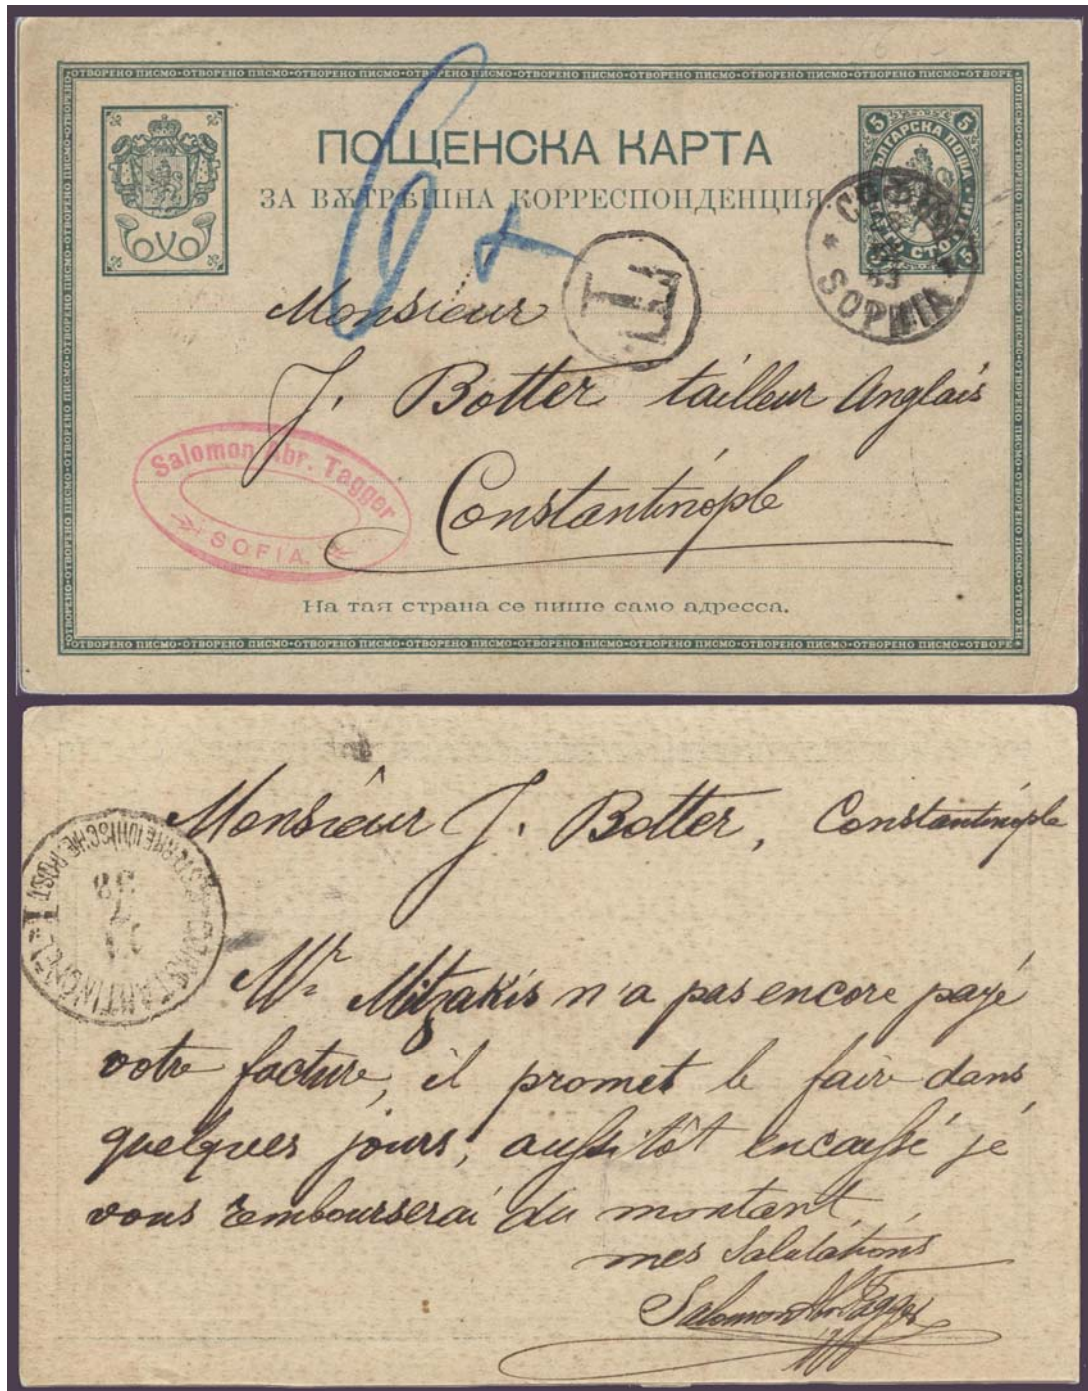 ОТВОРЕНО ПИСМО·ОТВОРЕНО ПИСМО·ОТВОРЕНО ПИСМО·ОТВОРЕНО ПИСМО·ОТВОРЕНО ПИСМО·ОТВОРЕНО ПИСМО·ОТВОРЕНО ПИСМО·ОТВОРЕНО ПИСМО·ОТВОРЕ
5 5
БЪЛГАРСКА ПОЩА
СТО
5 5
ПОЩЕНСКА КАРТА
ЗА ВѪТРѢШНА КОРРЕСПОНДЕНЦИЯ.
SOPHIA
T
Monsieur
J. Botter tailleur Anglais
Constantinople
Salomon Abr. Tagger
SOFIA.
На тая страна се пише само адресса.
Monsieur J. Botter, Constantinople
CONSTANTINOPEL I
ÖSTERREICHISCHE POST
Mr Mitzakis n'a pas encore payé
votre facture, il promet le faire dans
quelques jours; aussitôt encaissé je
vous rembourserai du montant,
mes Salutations
Salomon Abr Tagger